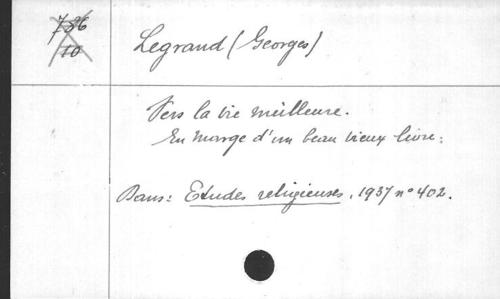 756
10
Legrand (Georges)
Vers la vie meilleure.
En marge d'un beau vieux livre.
Dans: Etudes religieuses, 1937 n° 402.